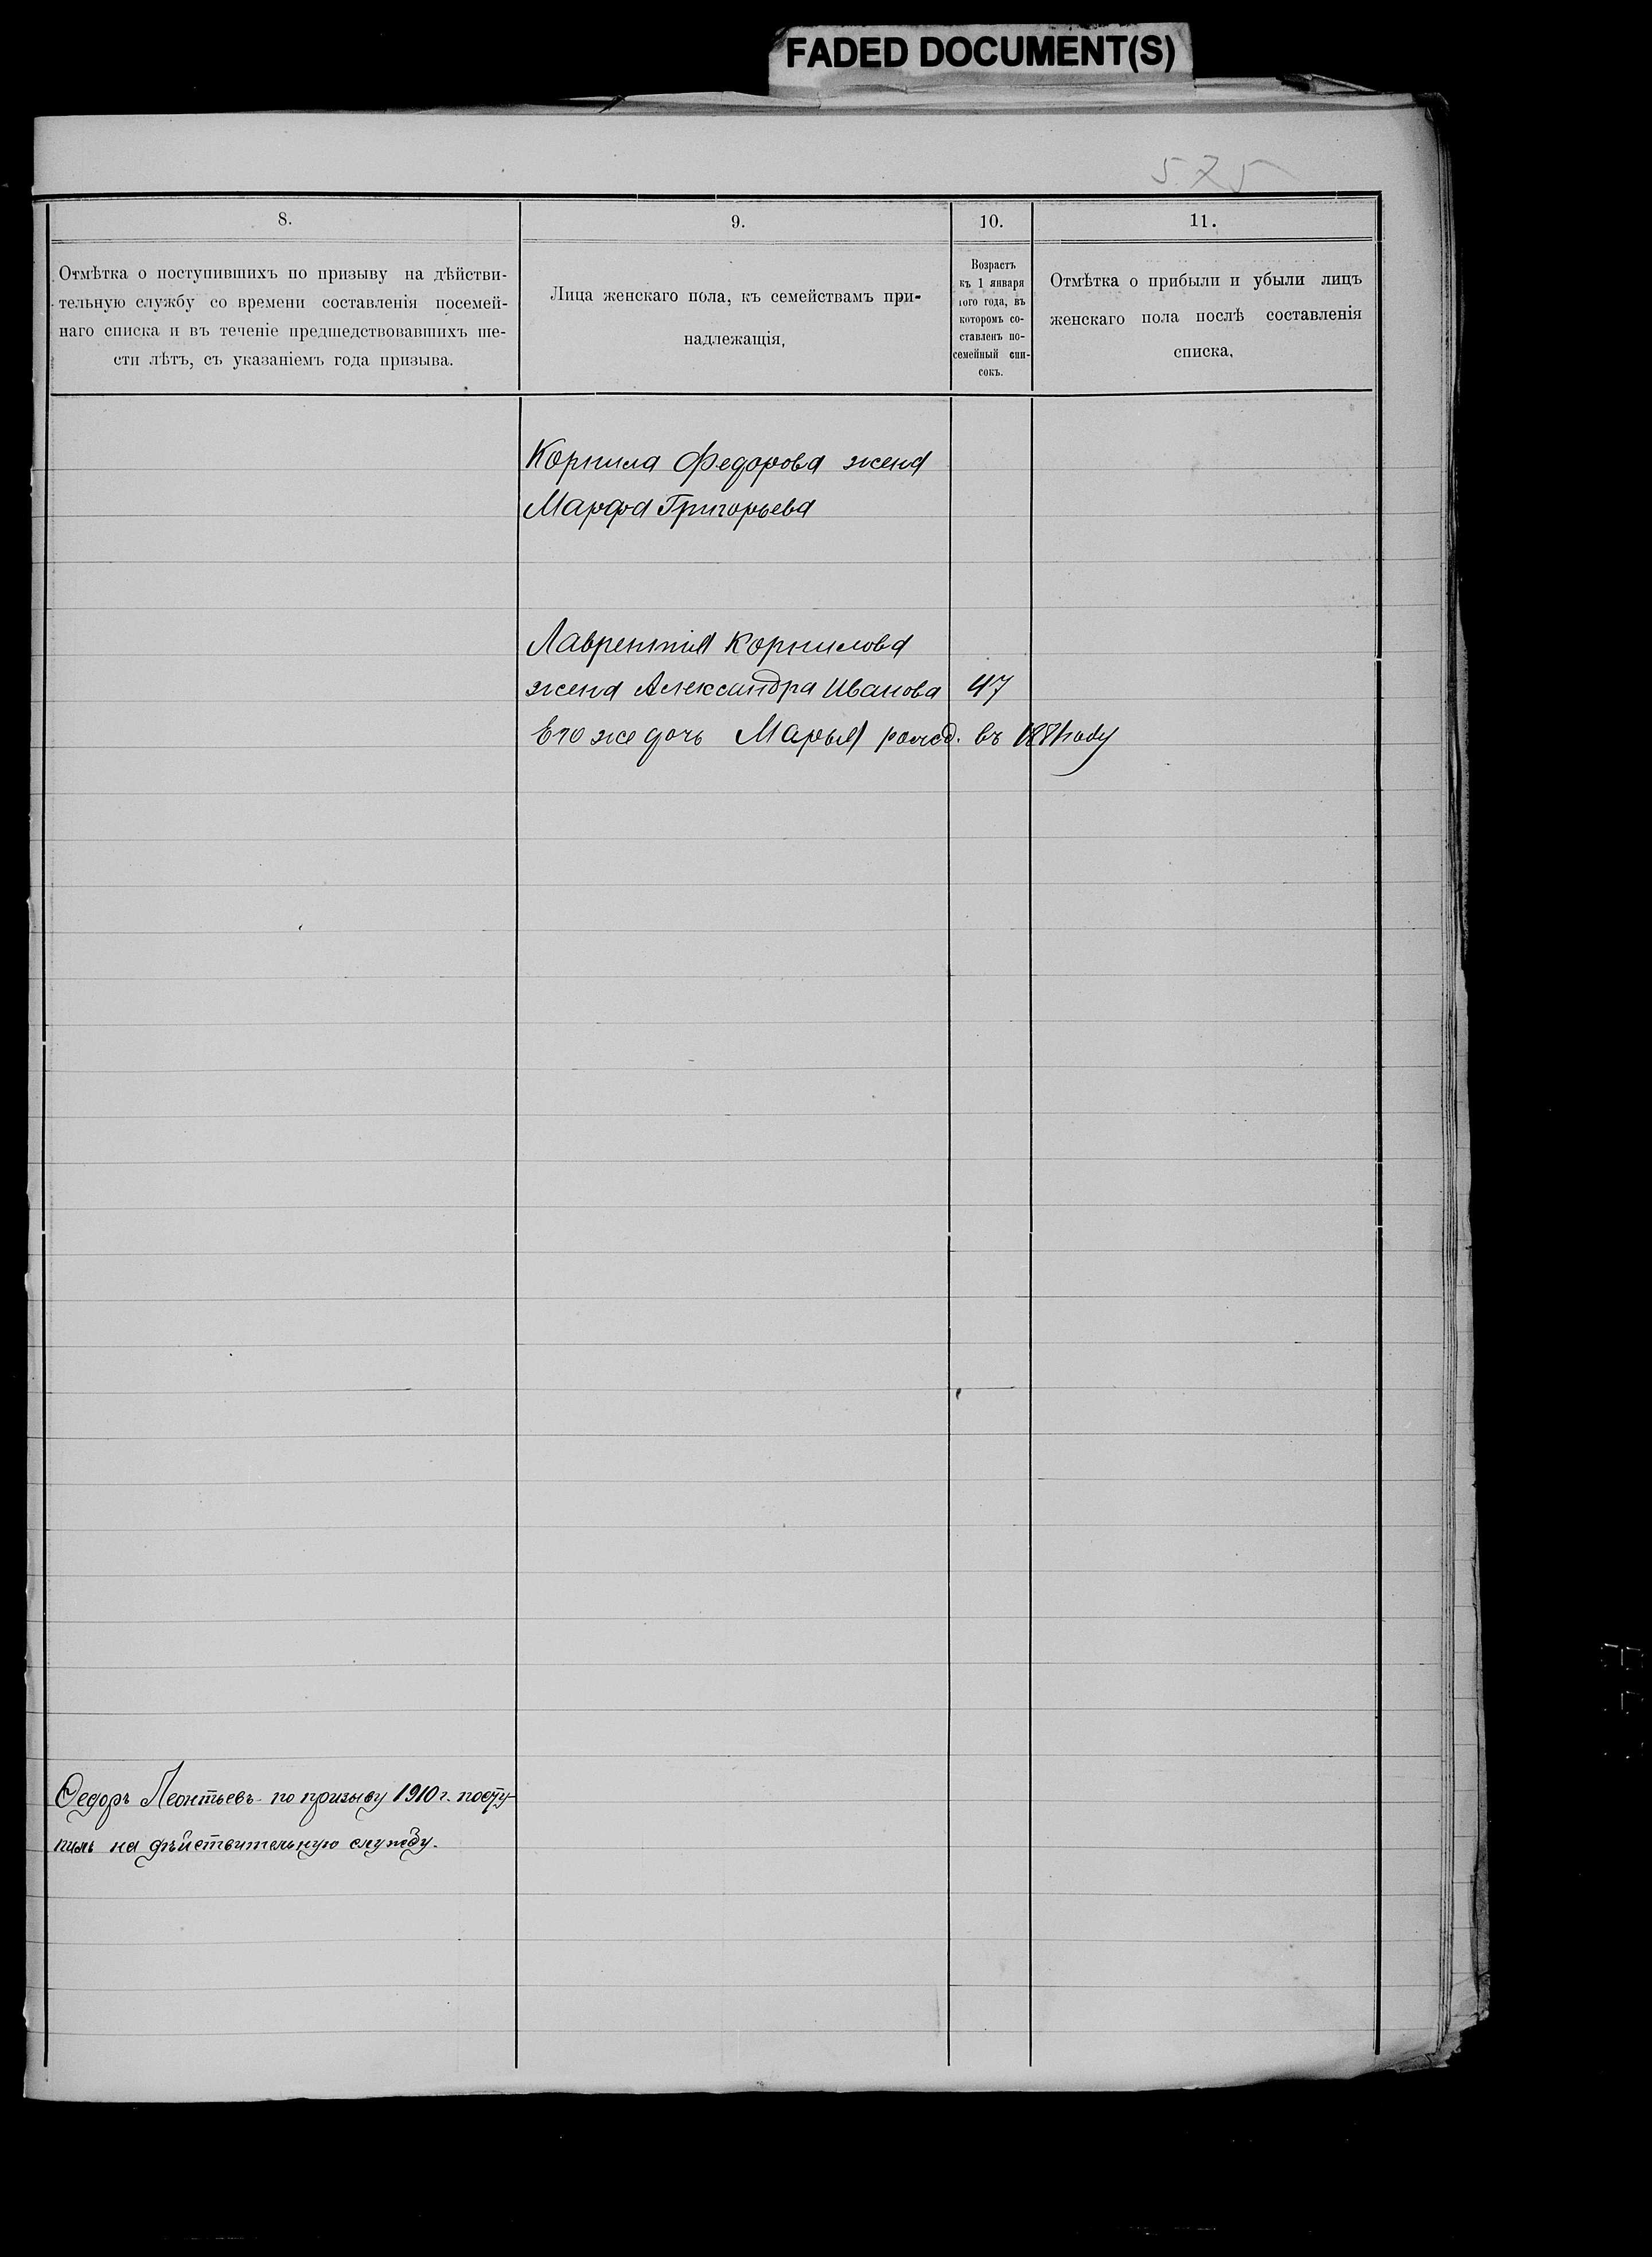 FADED DOCUMENT(S)
575
8.
Отмѣтка о поступившихъ по призыву на дѣйстви-
тельную службу со времени составленія посемей-
наго списка и въ теченіе предшедствовавшихъ ше-
сти лѣтъ, съ указаніемъ года призыва.
9.
Лица женскаго пола, къ семействамъ при-
надлежащія,
10.
Возрастъ
къ 1 января
того года, въ
которомъ со-
ставленъ по-
семейный спи-
сокъ.
11.
Отмѣтка о прибыли и убыли лицъ
женскаго пола послѣ составленія
списка.
Корнила Федорова жена
Марфа Григорьева
Лаврентія Корнилова
жена Александра Иванова 47
Его же дочь Марья рожд. въ году
Ѳедоръ Леонтьевъ по призыву 1910 г. посту-
пилъ на дѣйствительную службу.